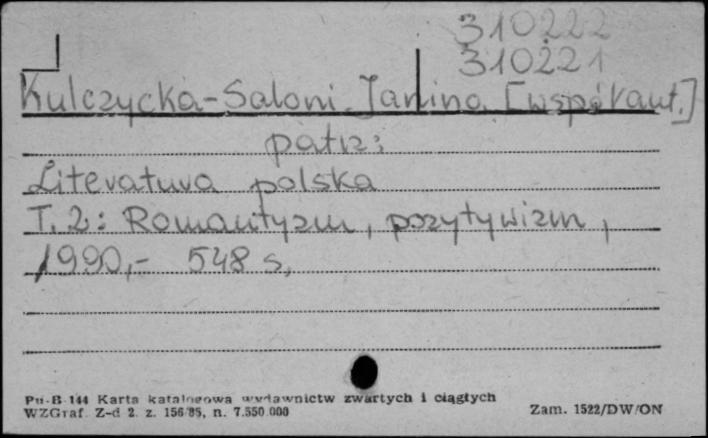 310222
310221
Kulczycka-Saloni Janina [współaut.]
patrz:
Literatura polska
T. 2: Romantyzm, pozytywizm,
1990,- 548 s,
Pu-B 144 Karta katalogowa wydawnictw zwartych i ciągłych
WZGraf. Z-d 2. z. 156/85, n. 7.550.000
Zam. 1522/DW/ON